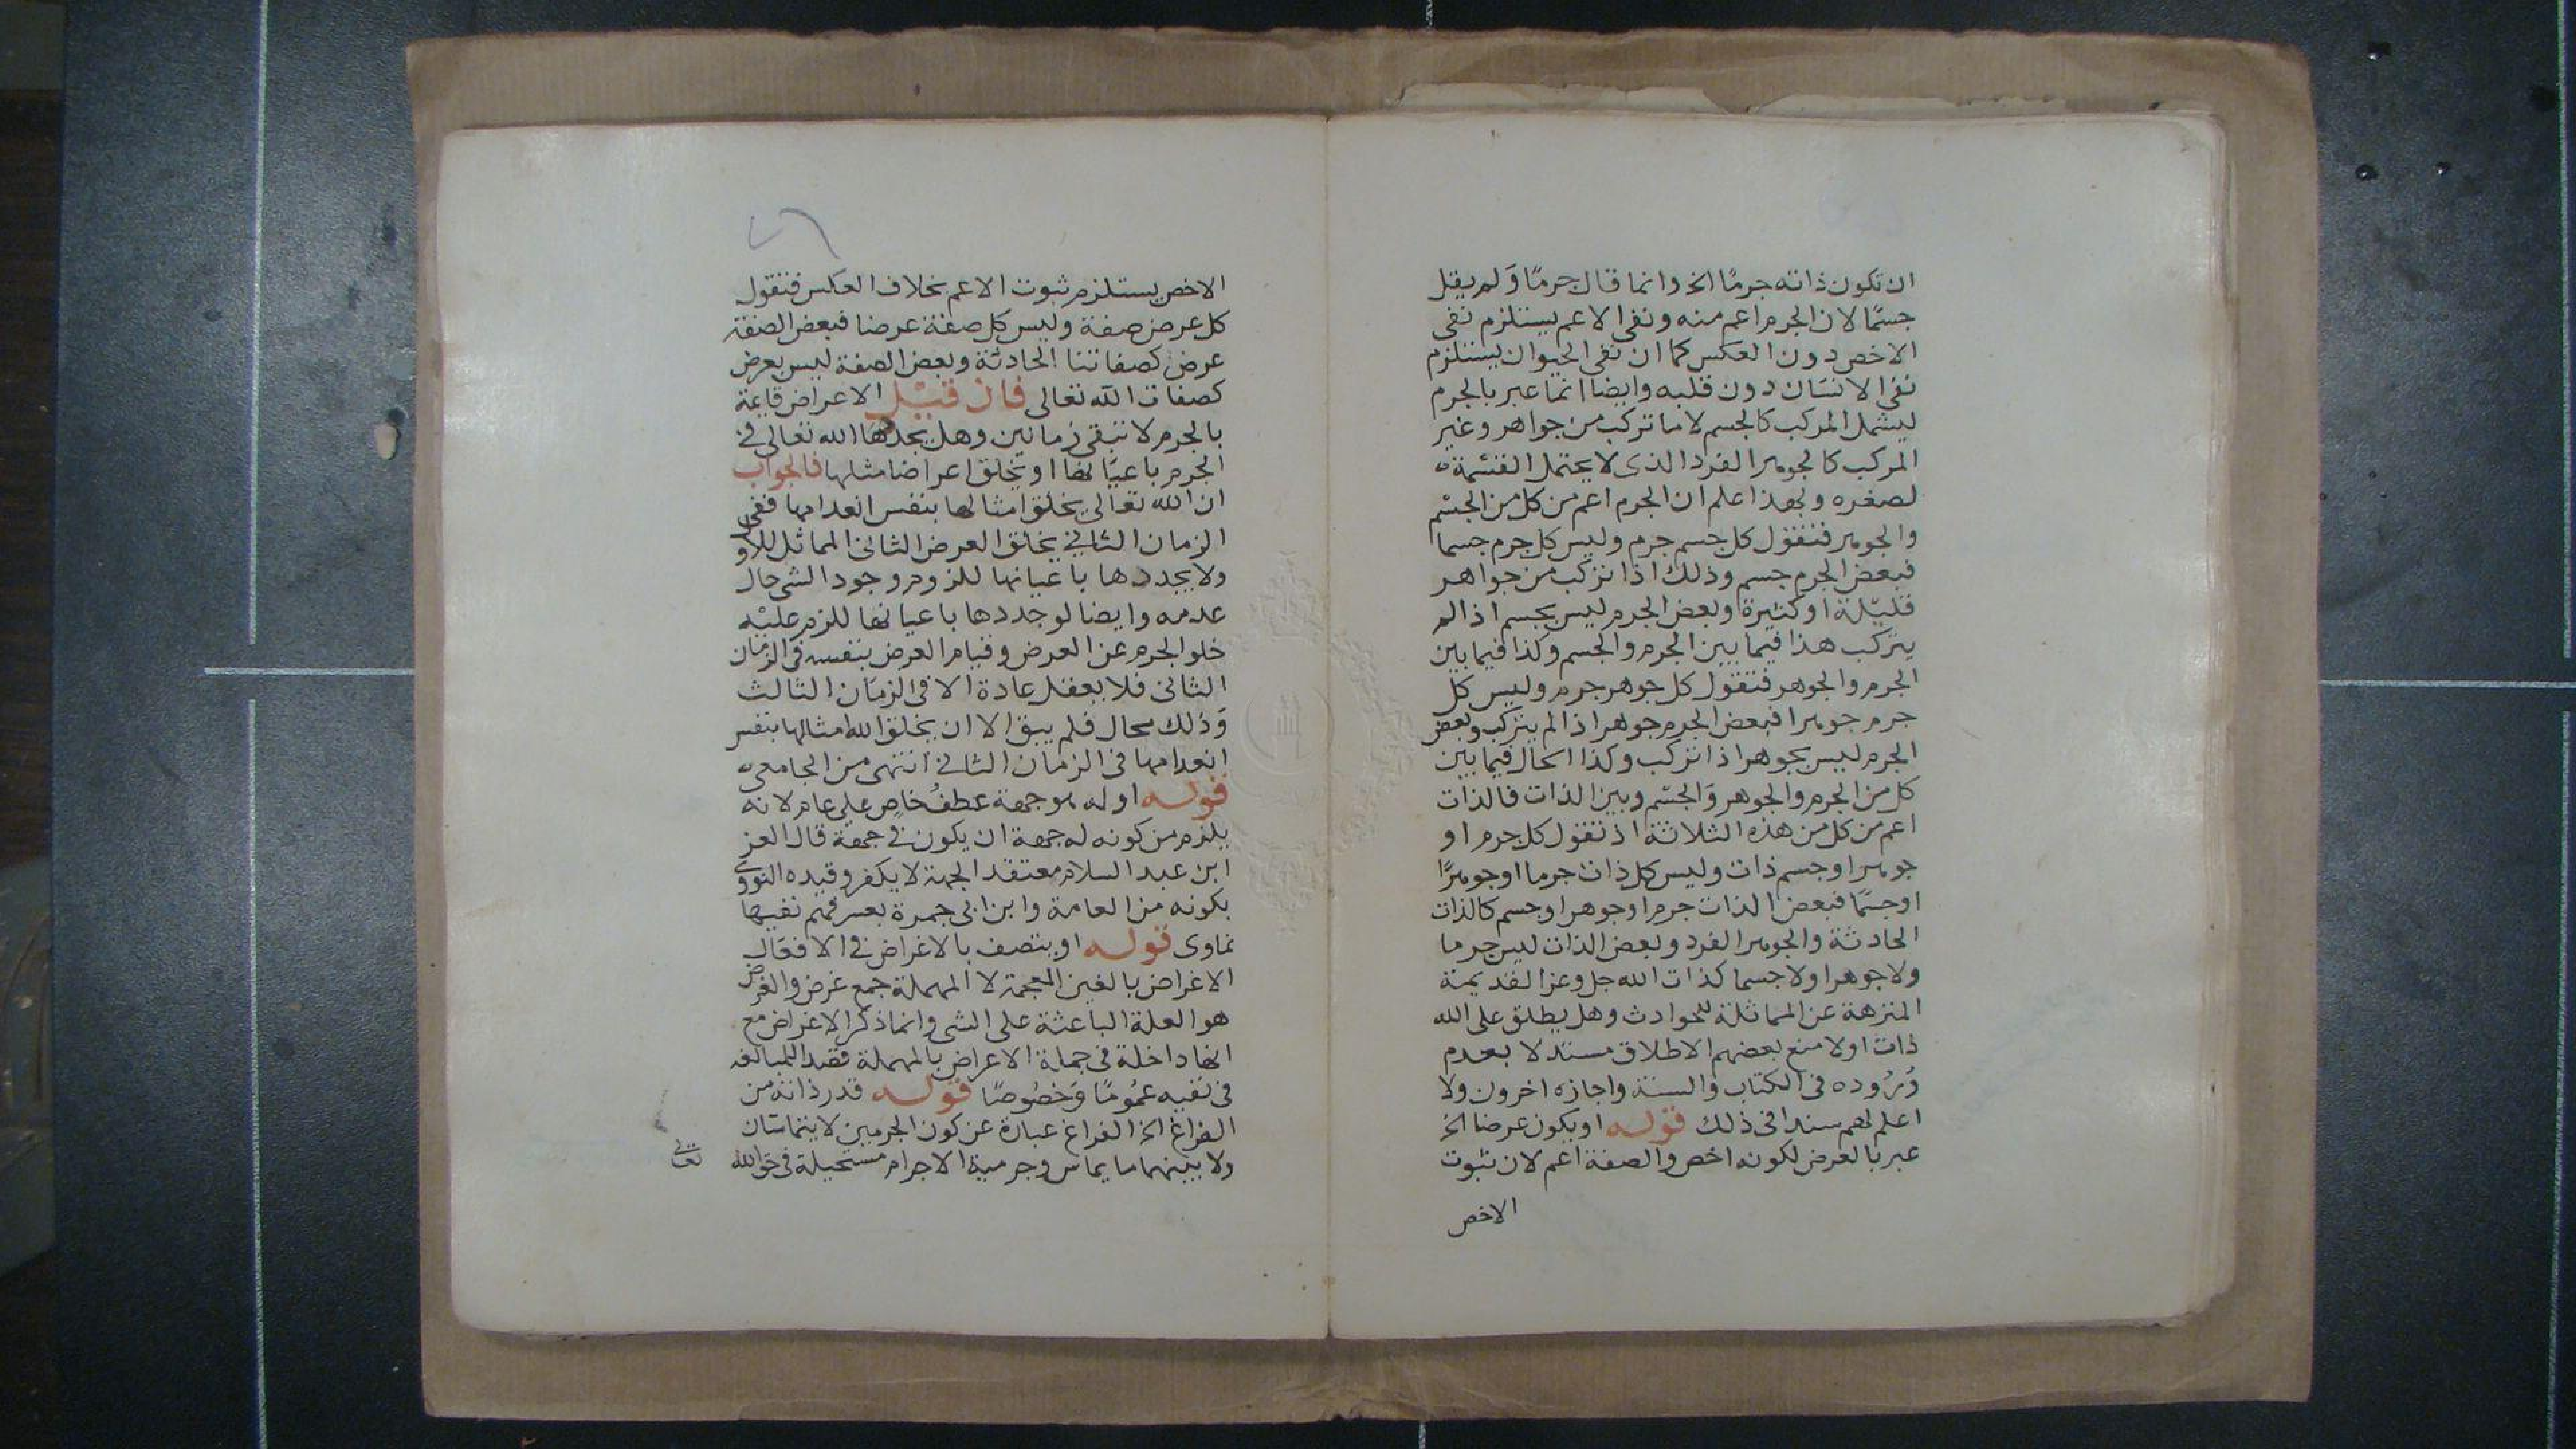 ان تكون ذاته جرمًا الخ وانما قال جرمًا وَلم يقل
جسمًا لان الجرم اعم منه ونفى الاعم يستلزم نفى
الاخص دون العكس كما ان نفى الحيوان يستلزم
نفى الانسان دون قلبه وايضا انما عبر بالجرم
ليشمل المركب كالجسم لا ما تركب من جواهر وغير
المركب كالجوهر الفرد الذى لا يحتمل القسمة
لصغره وبهذا علم ان الجرم اعم من كل من الجسم
والجوهر فتقول كل جسم جرم وليس كل جرم جسما
فبعض الجرم جسم وذلك اذا تركب من جواهر
قليلة او كثيرة وبعض الجرم ليس بجسم اذا لم
يتركب هذا فيما بين الجرم والجسم وكذا فيما بين
الجرم والجوهر فتقول كل جوهر جرم وليس كل
جرم جوهرا فبعض الجرم جوهر اذا لم يتركب وبعض
الجرم ليس بجوهر اذا تركب وكذا الحال فيما بين
كل من الجرم والجوهر وَالجسم وبين الذات فالذات
اعم من كل من هذه الثلاثة اذ تقول كل جرم او
جوهر او جسم ذات وليس كل ذات جرما او جوهرًا
او جسمًا فبعض الذات جرم او جوهر او جسم كالذات
الحادثة والجوهر الفرد وبعض الذات ليس جرما
ولا جوهرا ولا جسما كذات الله جل وعز القديمة
المنزهة عن المماثلة للحوادث وهل يطلق على الله
ذات اولا منع بعضهم الاطلاق مستدلا بعدم
وُرُوده فى الكتاب والسنة واجازه اخرون ولا
اعلم لهم سندا فى ذلك قوله او يكون عرضا الخ
عبر بالعرض لكونه اخص والصفة اعم لان ثبوت
الاخص
الاخص يستلزم ثبوت الاعم بخلاف العكس فنقول
كل عرض صفة وليس كل صفة عرضا فبعض الصفة
عرض كصفاتنا الحادثة وبعض الصفة ليس بعرض
كصفات الله تعالى فان قيل الاعراض قايمة
بالجرم لا تبقى زمانين وهل يجددها الله تعالى فى
الجرم باعيانها او يخلق اعراضا مثلها فالجواب
ان الله تعالى يخلق امثالها بنفس انعدامها ففى
الزمان الثانى يخلق العرض الثانى المماثل للاول
ولا يجددها باعيانها للزوم وجود الشى حال
عدمه وايضا لو جددها باعيانها للزم عليه
خلو الجرم عن العرض وقيام العرض بنفسه فى الزمان
الثانى فلا يعقل عادة الا فى الزمان الثالث
وَذلك محال فلم يبق الا ان يخلق الله امثالها بنفس
انعدامها فى الزمان الثانى انتهى من الجامعى
قوله او له هو جهة عطفُ خاصٍ على عام لانه
يلزم من كونه له جهة ان يكون فى جهة قال العز
ابن عبد السلام معتقد الجهة لا يكفر وقيده النووى
بكونه من العامة وابن ابى جمرة بعسر فهم نفيها
نماوى قوله او يتصف بالاغراض فى الافعال
الاغراض بالغين المعجمة لا المهملة جمع غرض والغرض
هو العلة الباعثة على الشى وانما ذكر الاغراض مع
انها داخلة فى جملة الاعراض بالمهملة قصدا للمبالغة
فى نفيه عمُومًا وَخصُوصًا قوله قدر ذاته من
الفراغ الخ الفراغ عبارة عن كون الجرمين لا يتماسان
ولا بينهما ما يماس وجرمية الاجرام مستحيلة فى حق الله
تعالى